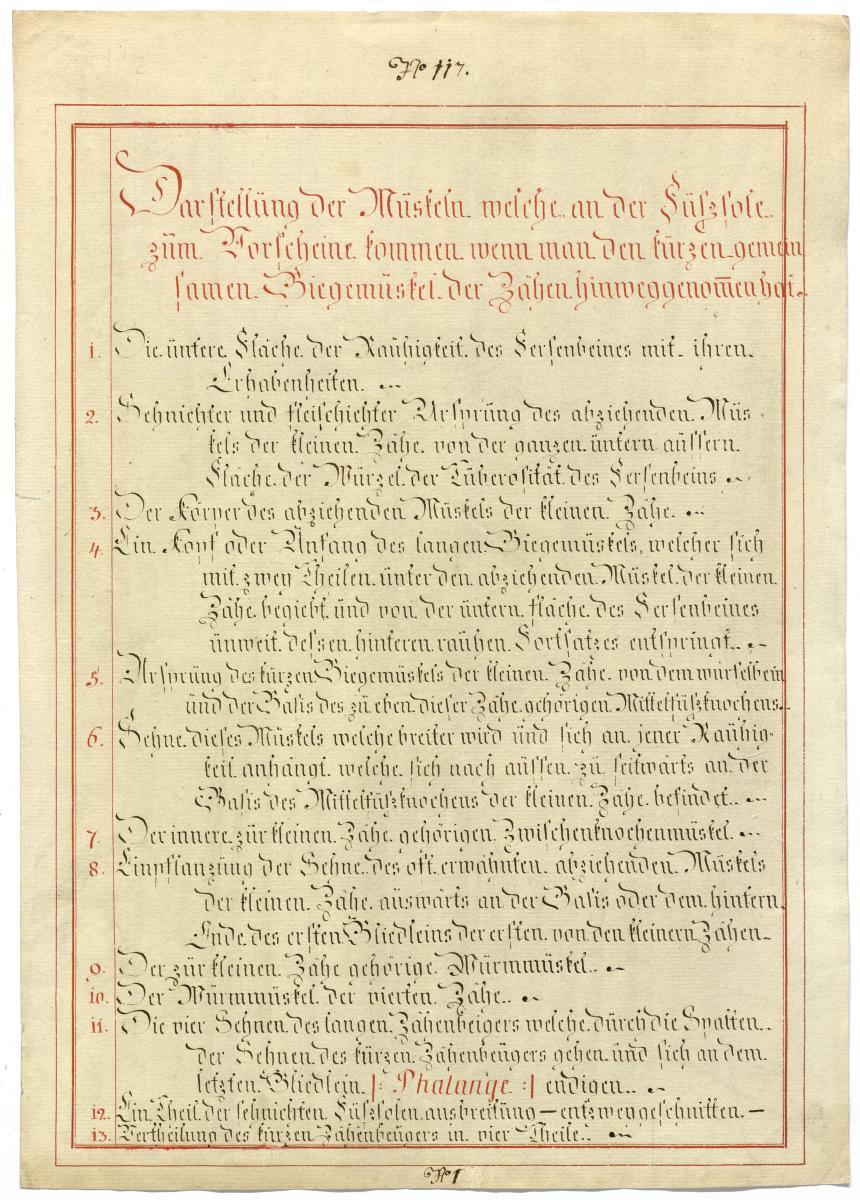 No 117.
Darstellüng der Müskeln welche an der Füszsole
züm Vorscheine kommen wenn man den kürzen gemein
samen Biegemüskel der Zähen hinweggenom̅en hat.
1. Die üntere Fläche der Raühigkeit des Fersenbeines mit ihren
Erhabenheiten.
2. Sehnichter und fleischichter Ursprüng des abziehenden Müs-
kels der kleinen Zähe von der ganzen üntern aüssern
Fläche der Würzel der Tüberosität des Fersenbeins
3. Der Körper des abziehenden Müskels der kleinen Zähe.
4. Ein Kopf oder Anfang des langen Biegemüskels, welcher sich
mit zwey Theilen ünter den abziehenden Müskel der kleinen
Zähe begiebt und von der üntern fläche des Fersenbeines
ünweit dessen hinteren raühen Fortsatzes entspringt.
5. Ursprüng des kürzen Biegemüskels der kleinen Zähe von dem würfelbein
und der Basis des zü eben dieser Zähe gehörigen Mittelfüszknochens.
6. Sehne dieses Müskels welche breiter wird und sich an jener Raühig-
keit anhängt welche sich nach aüssen zü seitwärts an der
Basis des Mittelfüszknochens der kleinen Zähe befindet.
7. Der innere zür kleinen Zähe gehörigen Zwischenknochenmüskel.
8. Einpflanzüng der Sehne des oft erwähnten abziehenden Müskels
der kleinen Zähe aüswärts an der Basis oder dem hintern
Ende des ersten Gliedleins der ersten von den kleinern Zähen
9. Der zür kleinen Zähe gehörige Würmmüskel.
10. Der Würmmüskel der vierten Zähe.
11. Die vier Sehnen des langen Zähenbeigers welche dürch die Spalten
der Sehnen des kürzen Zähenbeügers gehen und sich an dem
letzten Gliedlein |: Phalange :| endigen.
12. Ein Theil der sehnichten Füszsolen aüsbreitüng — entzwey geschnitten. —
13. Vertheilüng des kürzen Zähenbeügers in vier Theile.
No 1